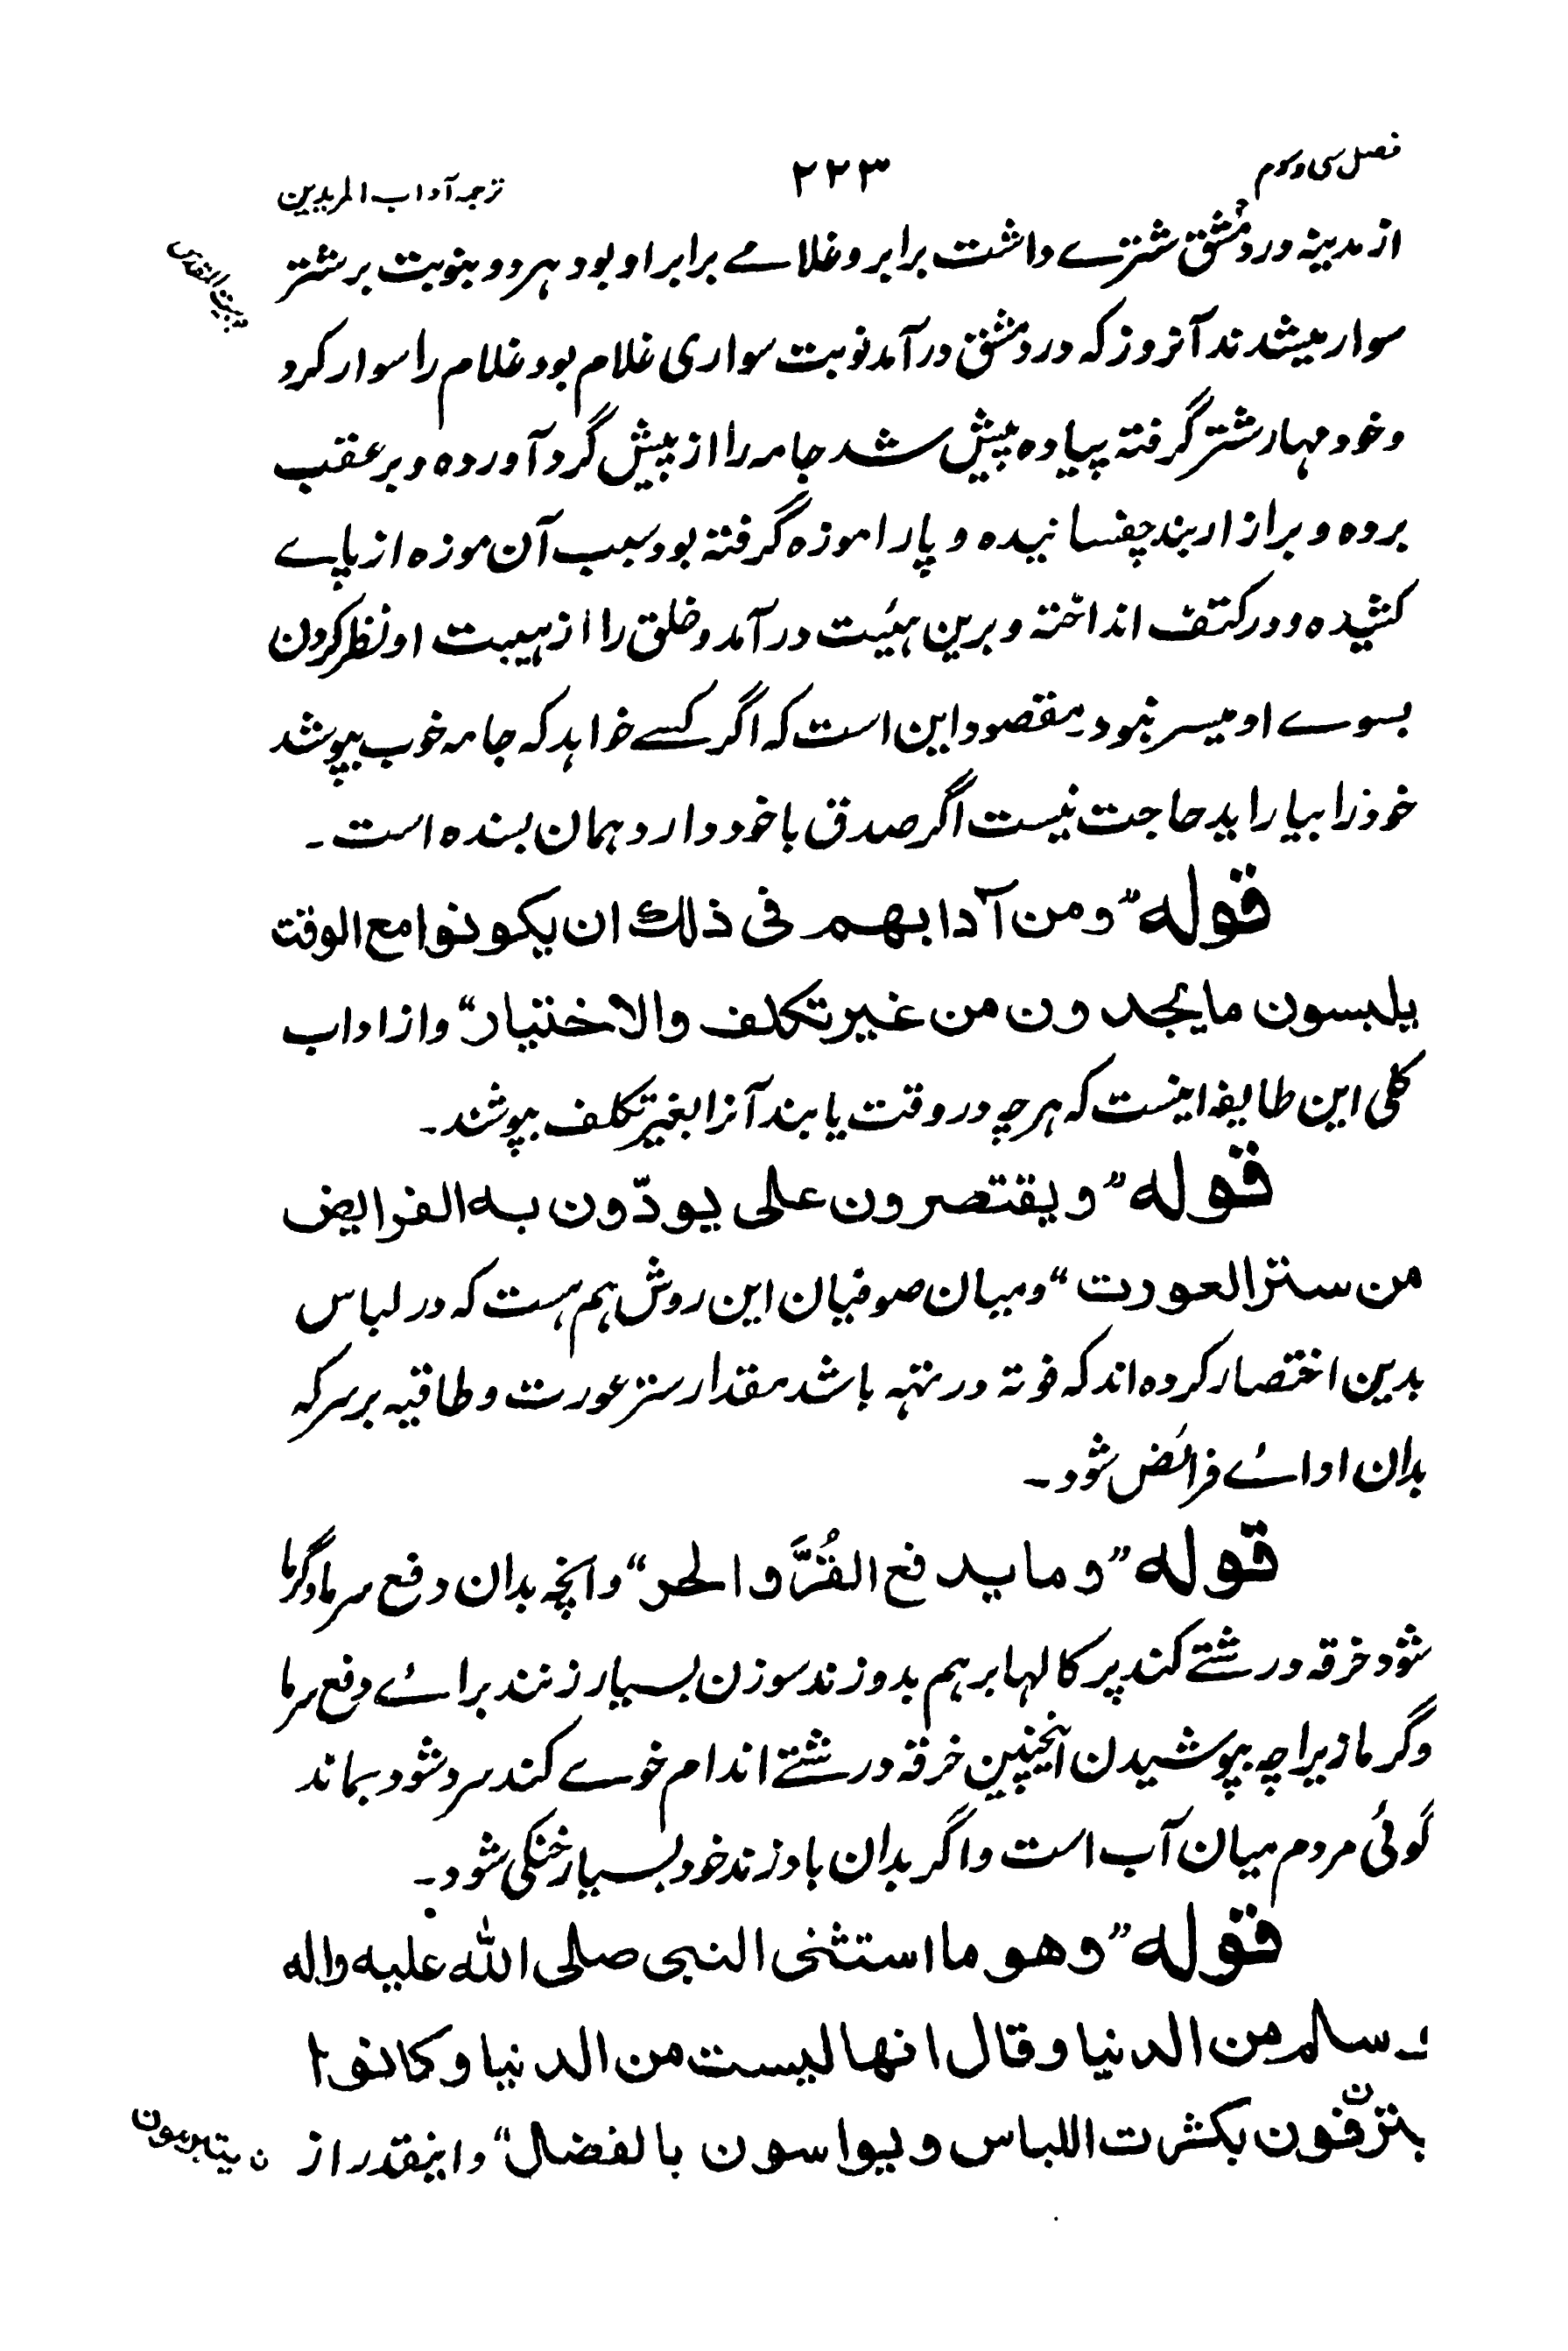 فصل سی و سوم
۲۲۳
ترجمہ آداب المریدین
از مدینہ در دمشق شترے داشت برابر و غلامے برابر او بود ہر دو بنوبت بر شتر
بیت المقدس
سوار میشدند آنروز کہ در دمشق در آمد نوبت سواری غلام بود غلام را سوار کرد
و خود مہار شتر گرفتہ پیادہ پیش شد جامہ را از پیش گرد آوردہ و بر عقب
بردہ و بر ازار بند چفسانیدہ و پا را موزہ گرفتہ بود سبب آن موزہ از پاے
کشیدہ و در کتف انداختہ و برین ہیئت در آمد و خلق را از ہیبت او نظر کردن
بسوے او میسر نبود۔ مقصود این است کہ اگر کسے خواہد کہ جامہ خوب بپوشد
خود را بیاراید حاجت نیست اگر صدق با خود دارد ہمان بسندہ است۔
قولہ ”ومن آدابهم فی ذلك ان یکونوا مع الوقت
یلبسون ما یجدون من غیر تکلف والاختیار“ و از اداب
کلی این طایفہ اینست کہ ہرچہ در وقت یابند آنرا بغیر تکلف بپوشند۔
قولہ ”ویقتصرون علی یودّون بہ الفرایض
من ستر العورت“ و میان صوفیان این روش ہم ہست کہ در لباس
بدین اختصار کردہ اند کہ فوتہ در تہہ باشد مقدار ستر عورت و طاقیہ بر سر کہ
بدان اداے فرائض شود۔
قولہ ”وما یدفع القُرَّ والحر“ و آنچہ بدان دفع سرما و گرما
شود خرقہ درشتے کند پر کالہا بر ہم بدوزند سوزن بسیار زنند براے دفع سرما
و گرما زیراچہ بپوشیدن اینچنین خرقہ درشتے اندام خوے کند سرد شود بماند
گوئی مردم میان آب است و اگر بدان باد زند خود بسیار خنکی شود۔
قولہ ”وهو ما استثنی النبی صلی اللہ علیه واله
و سلم من الدنیا وقال انها لیست من الدنیا وکانوا
یترفون بکثرت اللباس ویواسون بالفضال“ و اینقدر از
ن